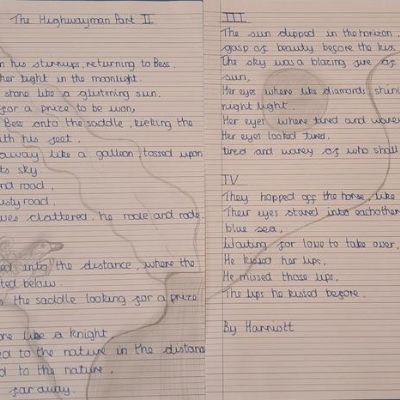 The Highwayman Part II
in his stirrups, returning to Bess.
her light in the moonlight.
shone like a glistering sun,
for a prize to be won,
Bess onto the saddle, kicking the
with his feet.
away like a galleon, tossed upon
sky.
road,
dusty road,
clattered, he rode and rode.
into the distance, where the
below.
the saddle looking for a prize
like a knight
to the nature in the distance
to the nature,
far away.
III
The sun dipped in the horizon,
gasp of beauty before the kiss.
The sky was a blazing fire of
sun,
Her eyes where like diamonds, shining
night light.
Her eyes where tired and
Her eyes looked tired,
tired and warey of who shall
IV
They hopped off the horse, like
Their eyes stared into eachother
blue sea,
Waiting for love to take over,
He kissed her lips,
He missed those lips,
The lips he kissed before.
By Harriott